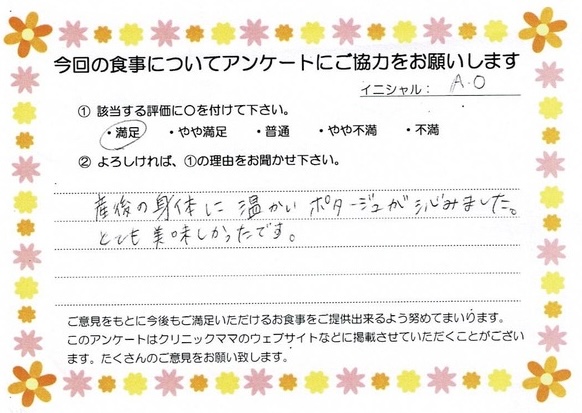 今回の食事についてアンケートにご協力をお願いします
イニシャル： A.O
① 該当する評価に〇を付けて下さい。
・満足 ・やや満足 ・普通 ・やや不満 ・不満
② よろしければ、①の理由をお聞かせ下さい。
産後の身体に温かいポタージュが沁みました。
とても美味しかったです。
ご意見をもとに今後もご満足いただけるお食事をご提供出来るよう努めてまいります。
このアンケートはクリニックママのウェブサイトなどに掲載させていただくことがござい
ます。たくさんのご意見をお願い致します。